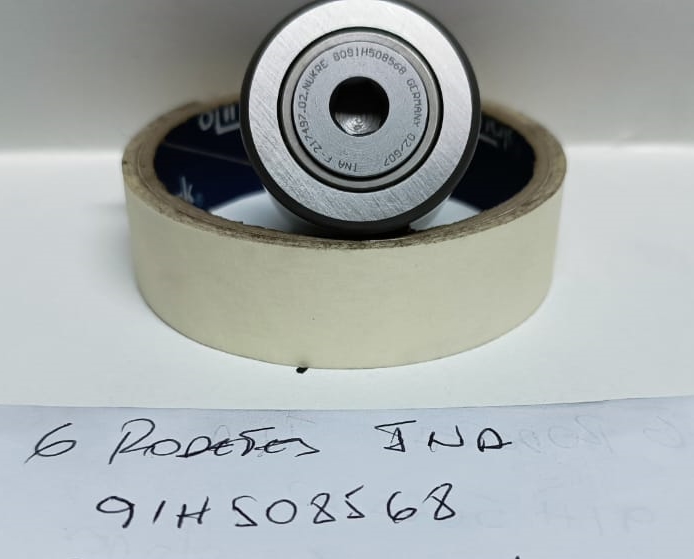 INA F-217497-02.NUKRE 8091H508568 GERMANY 02/607
6 RODETES INA
91H508568